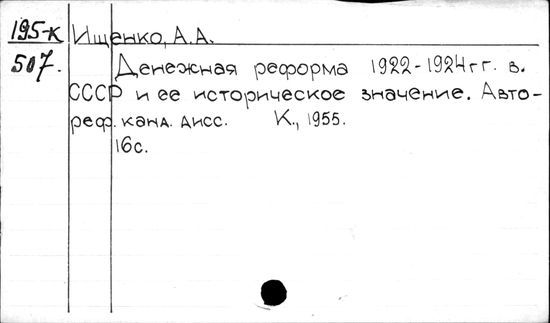 195-к Ищенко, А.А.
507. Денежная реформа 1922-1924гг. в.
СССР и ее историческое значение. Авто-
реф. канд. дисс. К., 1955.
16с.